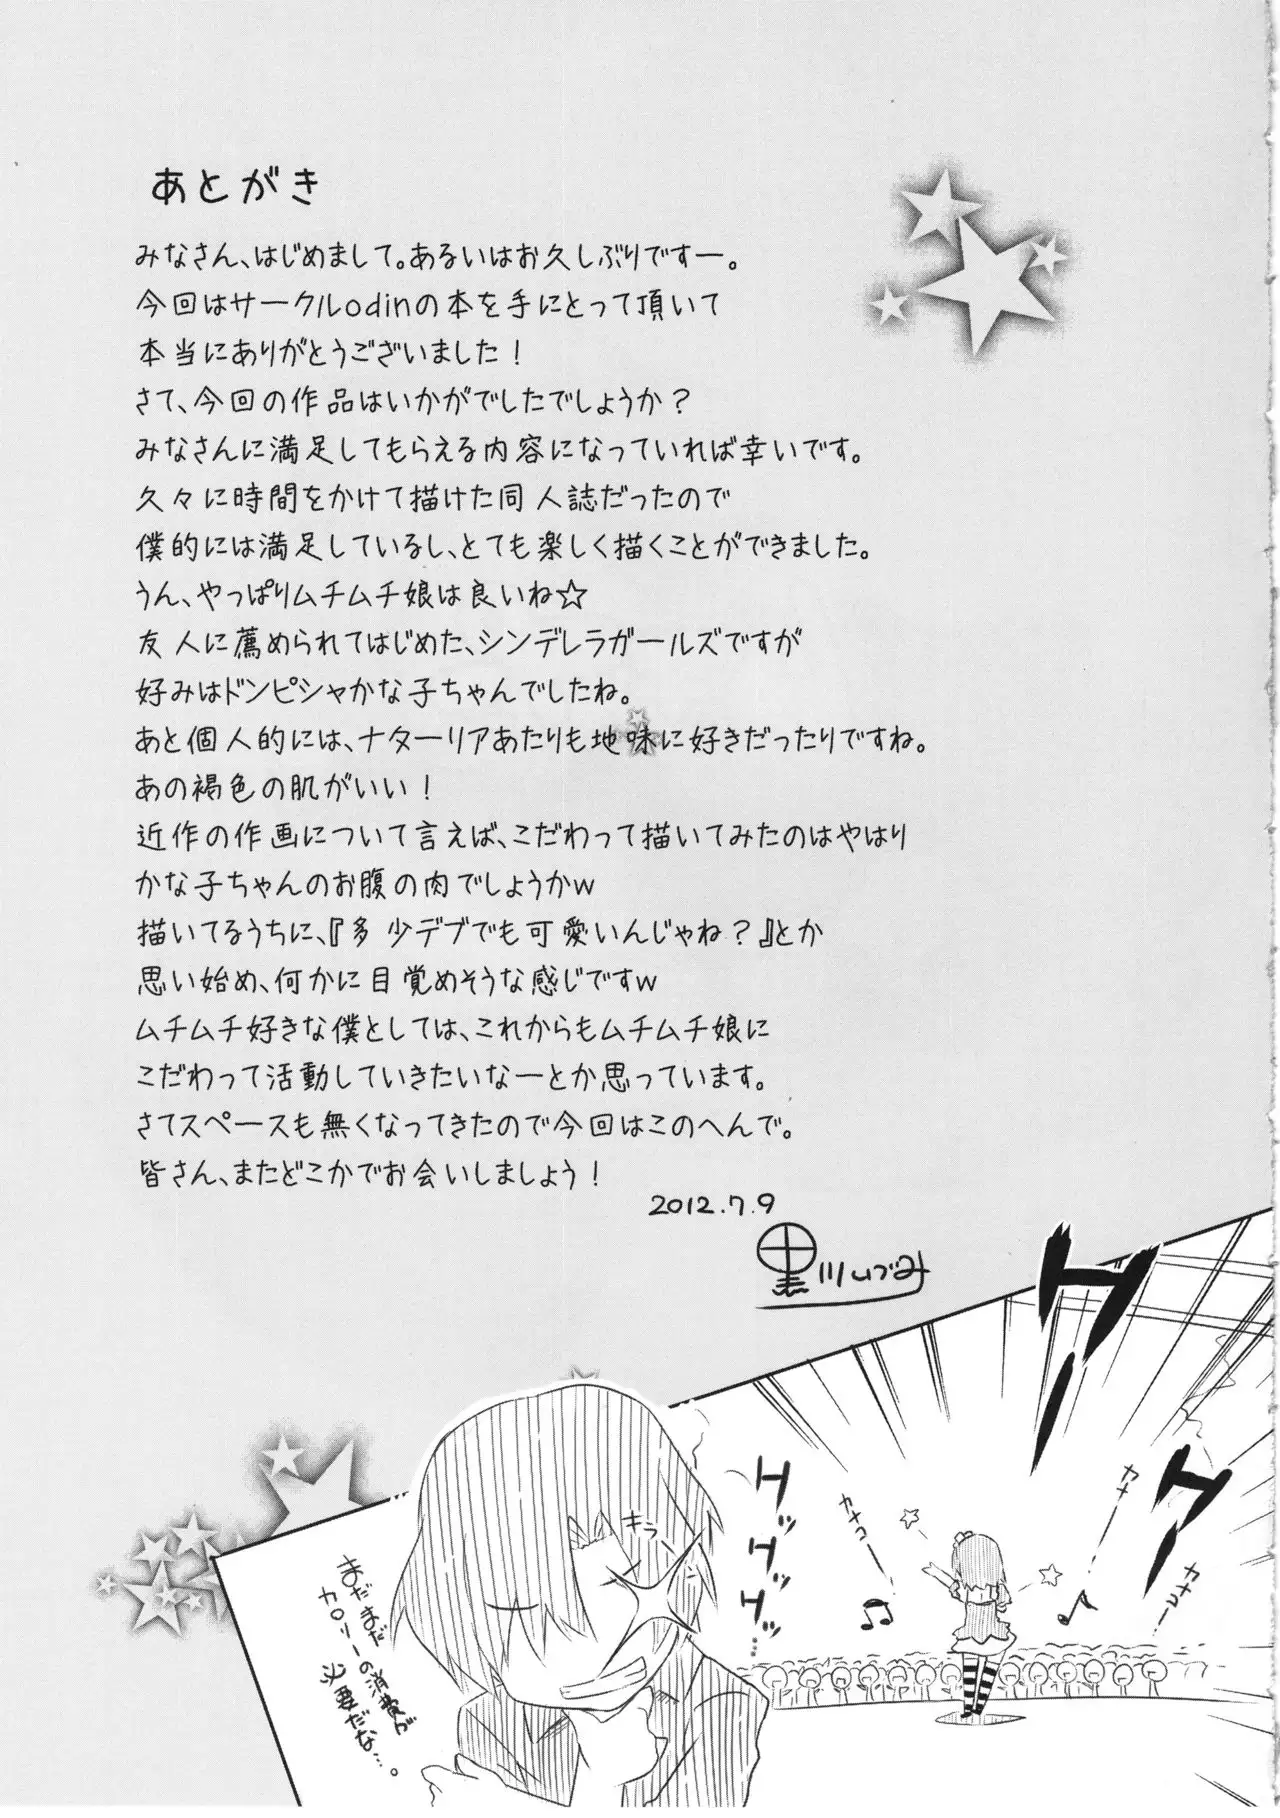 あとがき
みなさん、はじめまして。あるいはお久しぶりですー。
今回はサークルodinの本を手にとって頂いて
本当にありがとうございました！
さて、今回の作品はいかがでしたでしょうか？
みなさんに満足してもらえる内容になっていれば幸いです。
久々に時間をかけて描けた同人誌だったので
僕的には満足しているし、とても楽しく描くことができました。
うん、やっぱりムチムチ娘は良いね☆
友人に薦められてはじめた、シンデレラガールズですが
好みはドンピシャかな子ちゃんでしたね。
あと個人的には、ナターリアあたりも地味に好きだったりですね。
あの褐色の肌がいい！
近作の作画について言えば、こだわって描いてみたのはやはり
かな子ちゃんのお腹の肉でしょうかw
描いてるうちに、『多少デブでも可愛いんじゃね？』とか
思い始め、何かに目覚めそうな感じですw
ムチムチ好きな僕としては、これからもムチムチ娘に
こだわって活動していきたいなーとか思っています。
さてスペースも無くなってきたので今回はこのへんで。
皆さん、またどこかでお会いしましょう！
2012.7.9
黒川いづみ
ドッ
ドッ
ドッドッドッ…
カナコー
カナコー
キラーン
まだまだ
カロリーの消費が
必要だな…。